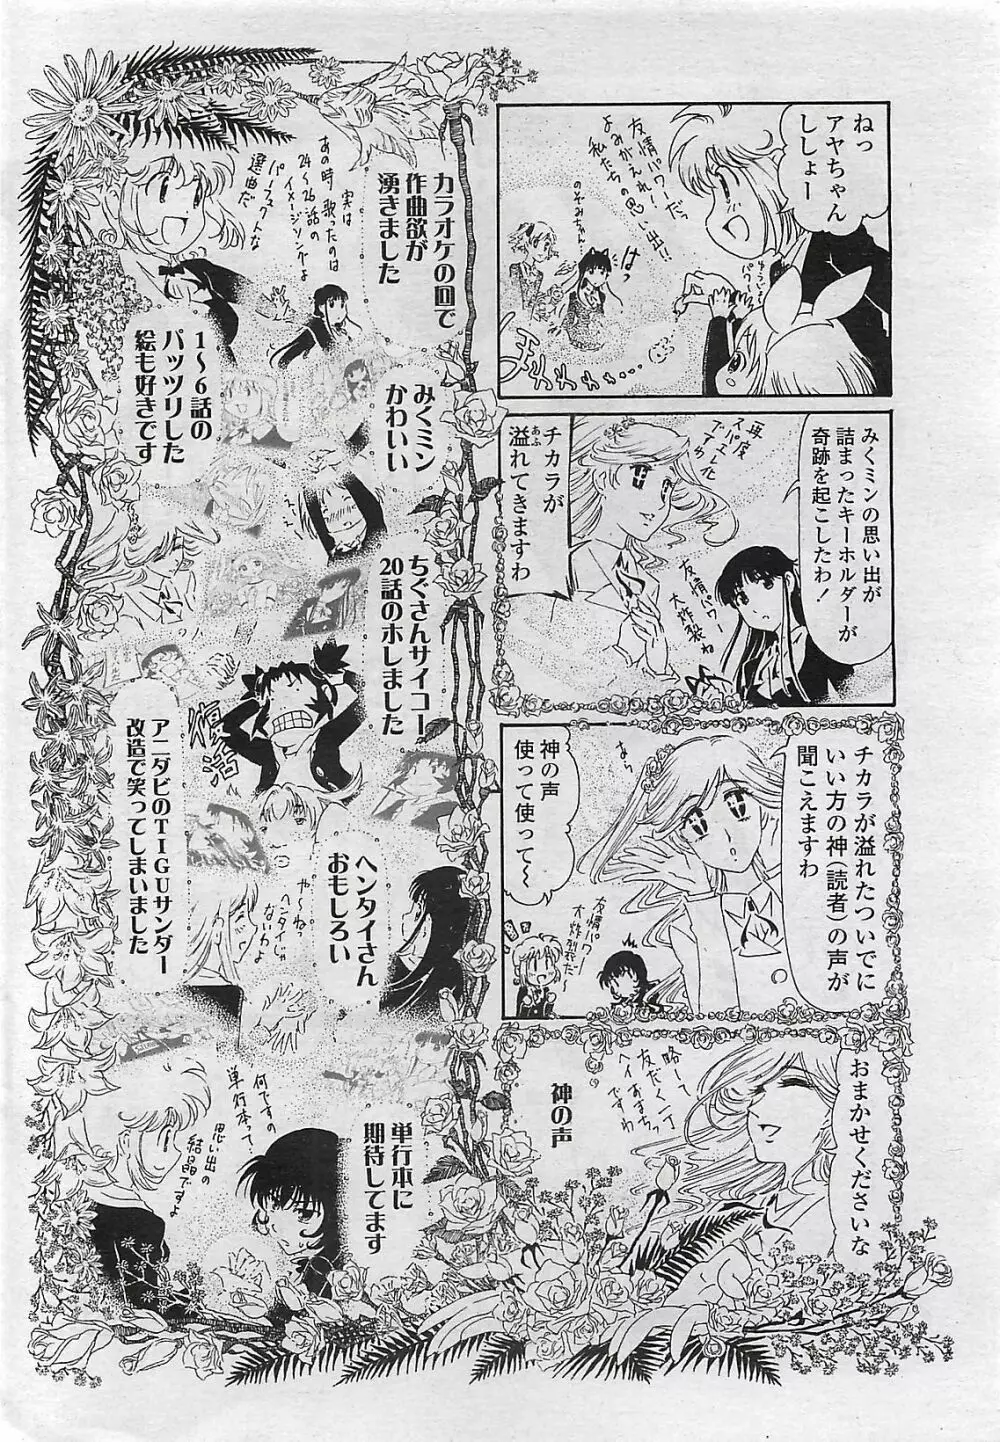 ねっ
アヤちゃん
ししょー
友情パワーだっ
よみがえれ!
私たちの思い出!!
のぞみちゃん
はっ
ゆうじょう
パワー
みくミンの思い出が
詰まったキーホルダーが
奇跡を起こしたわ!
再度
スパエレ化
ですわ
チカラが
溢れてきますわ
あふ
友情パワー
大炸裂ね
チカラが溢れたついでに
いい方の神(読者)の声が
聞こえますわ
あら
神の声
使って使って〜
友情パワー
大炸裂だ〜
おまかせくださいな
略して
ですわ
神の声
カラオケの回で
作曲欲が
湧きました
実は
あの時歌ったのは
24〜26話の
イメージソングよ
パーフェクトな
選曲だ
1〜6話の
パッツリした
絵も好きです
みくミン
かわいい
ちぐさんサイコー
20話のホしました
復活
アニダビのTIGUサンダー
改造で笑ってしまいました
ヘンタイさん
おもしろい
や〜ねっ
ヘンタイじゃ
ないわよ
単行本に
期待してます
何ですの
単行本って
思い出の
結晶ですよ